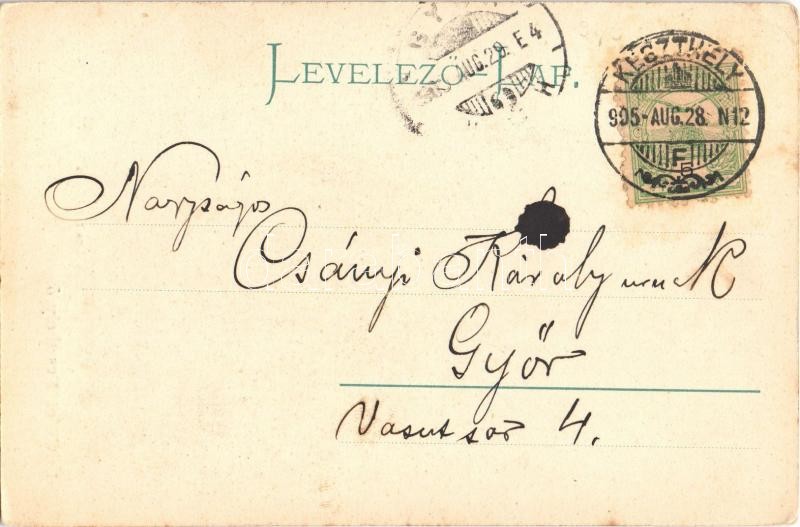 LEVELEZŐ-LAP.
GY
AUG. 29. E 4
KESZTHELY
905-AUG.28. N12
F
5
Nagyságos
Csányi Károly urnak
Győr
Vasut sor 4.